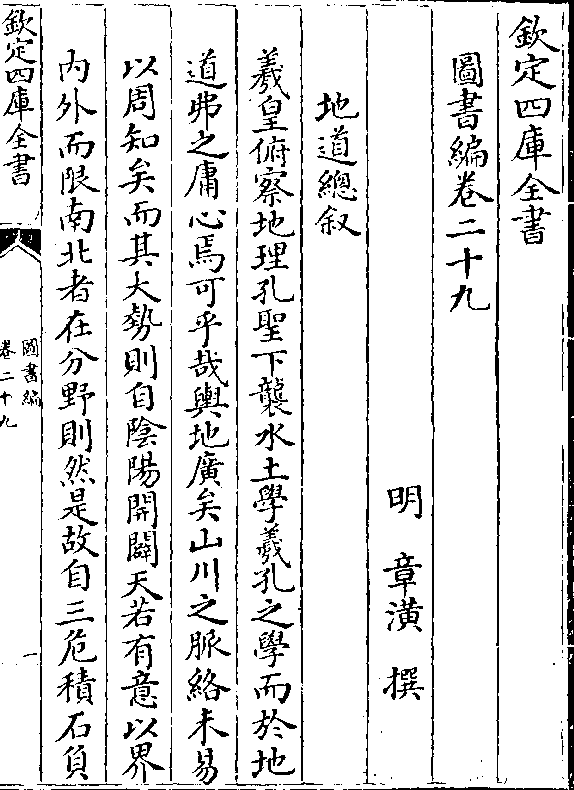 欽定四庫全書
圖書編卷二十九
明 章潢 撰
地道總叙
羲皇俯察地理孔聖下襲水土學羲孔之學而於地
道弗之庸心焉可乎哉輿地廣矣山川之脈絡未易
以周知矣而其大勢則自陰陽開闢天若有意以界
内外而限南北者在分野則然是故自三危積石負
欽定四庫全書
圖書編
卷二十九
一